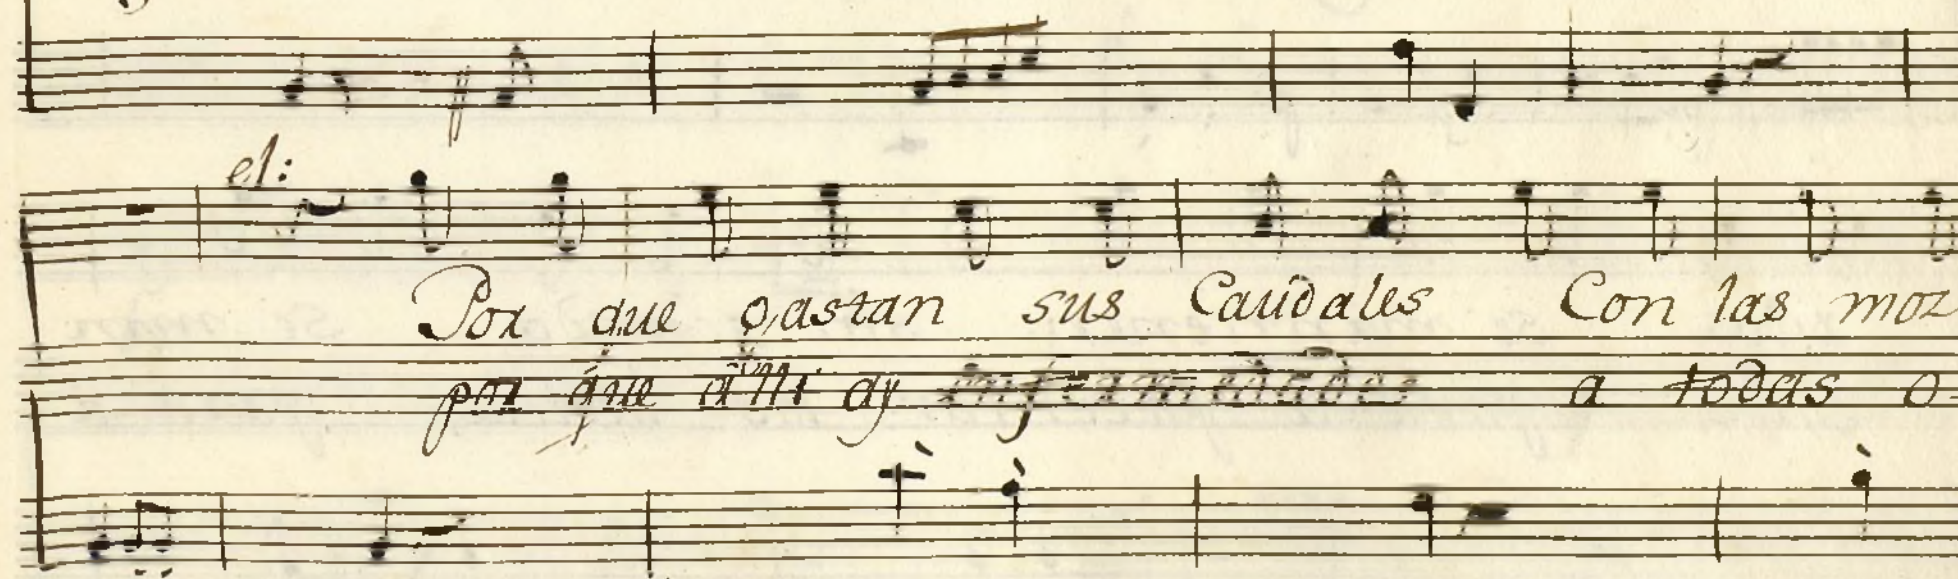 el:
Por que gastan sus Caudales Con las moz
por que alli ay enfermedades a todas o-